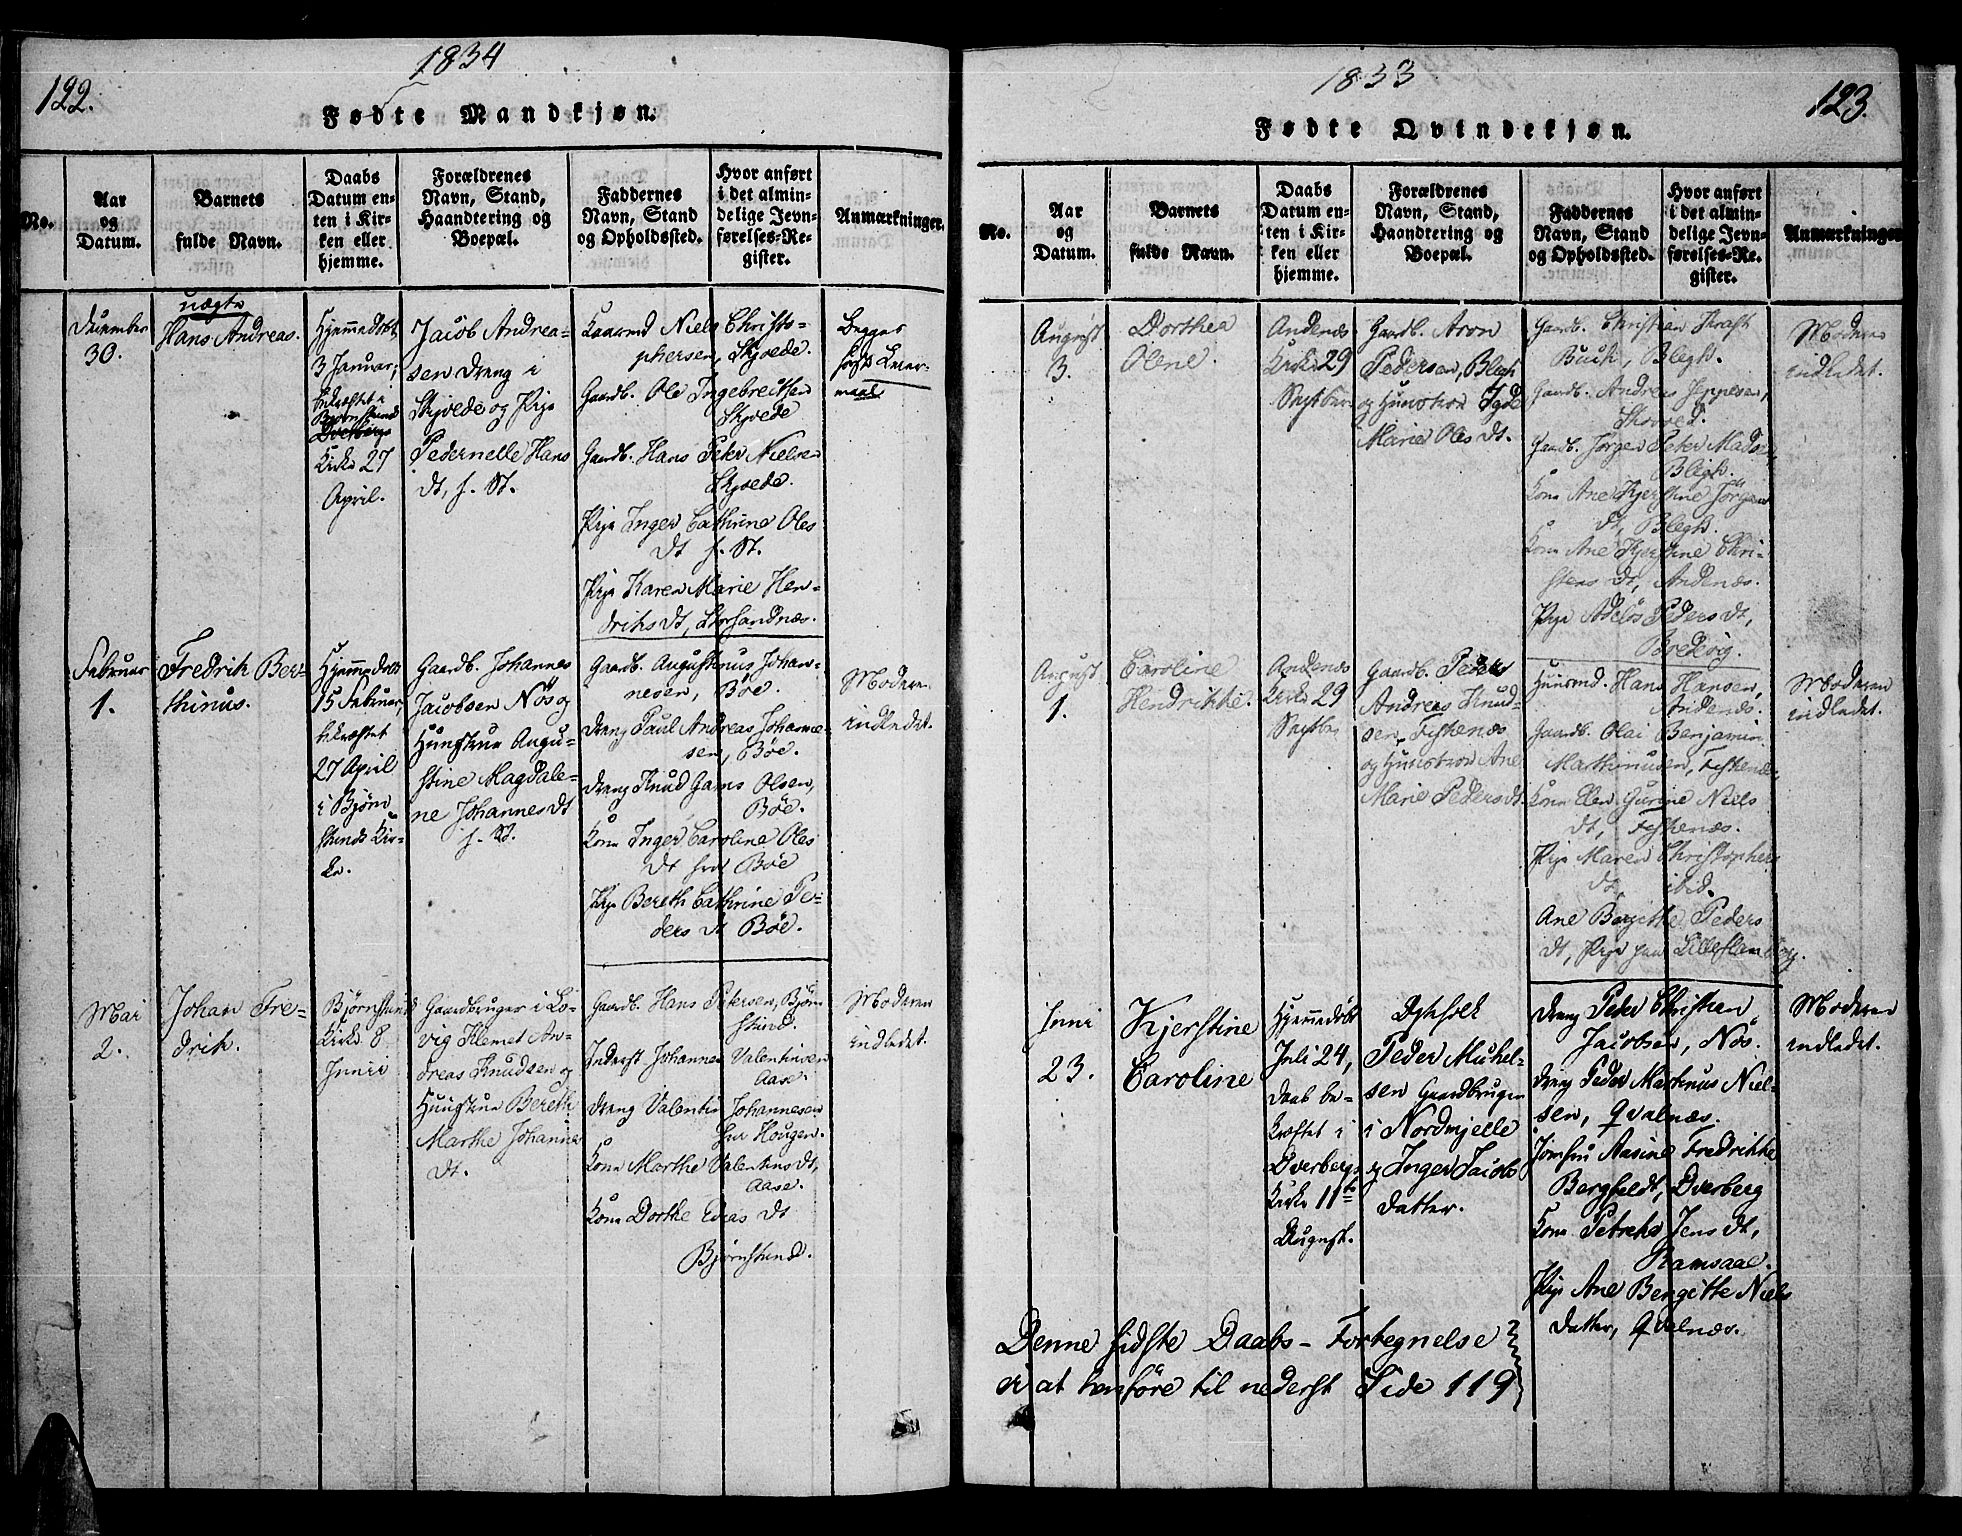 122.
1834
Fødte Mandkjøn.
No.
Aar
og
Datum.
Barnets
fulde Navn.
Daabs
Datum en-
ten i Kir-
ken eller
hjemme.
Forældrenes
Navn, Stand,
Haandtering og
Boepæl.
Faddernes
Navn, Stand
og Opholdssted.
Hvor anført
i det almin-
delige Jevn-
førelses-Re-
gister.
Anmærkninger.
December
30.
uægte
Hans Andreas.
Hjemmedøbt
3 Januar,
bekræftet i
Bjørnskinds
Kirke 27
April.
Jacob Andrea-
sen dreng i
Skjvede og Pige
Pedernelle Hans
dt, s. St.
Niels Christo-
phersen, Skjvede.
Gaardb. Ole Ingebretsen
Skjvede
Gaardb. Hans Peter Nielsen
Skjvede.
Pige Inger Cathrine Oles
dt s. St.
Pige Karen Marie Hen-
driks dt, Storsandnæs.
Begges
første Leier-
maal
Februar
1.
Fredrik Ber-
thinus.
Hjemmedøbt
15 Februar,
bekræftet
27 April
i Bjørn-
skinds Kir-
ke.
Gaardb. Johannes
Jacobsen Nøs og
Hunstrue Augu-
stine Magdale-
ne Johannes dt
s. St.
Gaardb. Augustinus Johan-
nesen, Bøe.
dreng Paul Andreas Johanne-
sen, Bøe.
dreng Knud Hans Olsen,
Bøe.
Kone Inger Caroline Oles
dt Bøe
Pige Bereth Cathrine Pe-
ders dt Bøe.
Moderen
indledet.
Mai
2.
Johan Fre-
drik.
Bjørnskinds
Kirke 8
Junii
Gaardbruger i Lo-
vig Klemet An-
dreas Knudsen og
Hunstrue Bereth
Marthe Johanne
dt.
Gaardb. Hans Petersen, Bjørn-
skind.
Inderst Johannes Valentinsen
Aase.
dreng Valentin Johannesen
Hougen.
Kone Marthe Valentins dt,
Aase.
Kone Dorthe Edias dt
Bjørnskind.
Moderen
indledet.
1833
123.
Fødte Qvindekjøn.
No.
Aar
og
Datum.
Barnets
fulde Navn.
Daabs
Datum en-
ten i Kir-
ken eller
hjemme.
Forældrenes
Navn, Stand,
Haandtering og
Boepæl.
Faddernes
Navn, Stand
og Opholdssted.
Hvor anført
i det almin-
delige Jevn-
førelses-Re-
gister.
Anmærkninger
August
3.
Dorthea
Olene.
Andenæs
Kirke 29
Septbr.
Gaardb. Aron
Pedersen, Blegh
og Hunstrue
Marie Oles dt.
Gaardb. Christian Kraft
Buch, Blegh.
Gaardb. Andreas Jeppesen,
Skovved.
Gaardb. Jørgen Peter Mads-
Blegh.
Kone Ane Kjerstine Jørgens
dt, Blegh.
Kone Ane Kjerstine Chri-
stens dt, Andenæs.
Pige Peders dt,
Bredevig.
Moderen
indledet.
August
1.
Caroline
Hendrikke.
Andenæs
Kirke 29
Septbr
Gaardb. Peder
Andreas Knud-
sen, Fiskenæs
og Hunstrue Ane
Marie Peders dt.
Huusmd. Hans Hansen,
Andenæs.
Gaardb. Olai Benjamin
Mathinusen, Fiskenæs
Kone Elen Gurine Niels
dt, Fiskenæs.
Pige Maren Christophers
dt, ibid.
Ane Bergithe Peders
dt, Pige
Moderen
indledet.
Junii
23.
Kjerstine
Caroline
Hjemmedøbt
Juli 24,
Daab be-
kræftet i
Dverbergs
Kirke 11te
August.
Ægtefolk
Peder Michel-
sen Gaardbruger
i Nordmjelle
og Inger Jacobs
datter.
dreng Peder Christian
Jacobsen, Nøs.
dreng Peder Martinus Niel-
sen, Qvalnæs.
Jomfru Aasine Fredrikke
Bergfeldt, Dverberg
Kone Petrikes Jens dt,
Ramsaae.
Pige Ane Bergitte Niels
datter, Qvalnæs.
Moderen
indledet.
Denne sidste Daabs-Fortegnelse
er at henføre til nederst Side 119